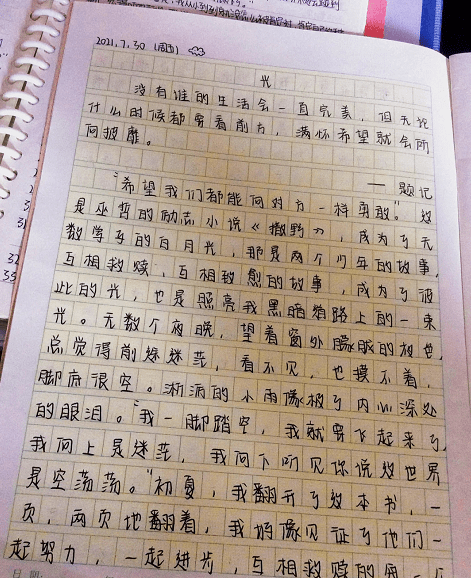 2021.7.30 (周五)
光
没有谁的生活会一直完美，但无论
什么时候都要看前方，满怀希望就会所
向披靡。
——题记
“希望我们都能向对方一样勇敢。”这
是巫哲的励志小说《撒野》，成为了无
数学子的白月光，那是两个少年的故事，
互相救赎，互相救愈的故事，成为了彼
此的光，也是照亮我黑暗路上的一束
光。无数个夜晚，望着窗外朦胧的夜色，
总觉得前途迷茫，看不见，也摸不着，
脚底很空。淅沥的小雨像极了内心深处
的眼泪。“我一脚踏空，我就要飞起来了，
我向上是迷茫，我向下听见你说这世界
是空荡荡。”初夏，我翻开了这本书，一
页，两页地翻着，我好像见证了他们一
起努力，一起进步，互相救赎的